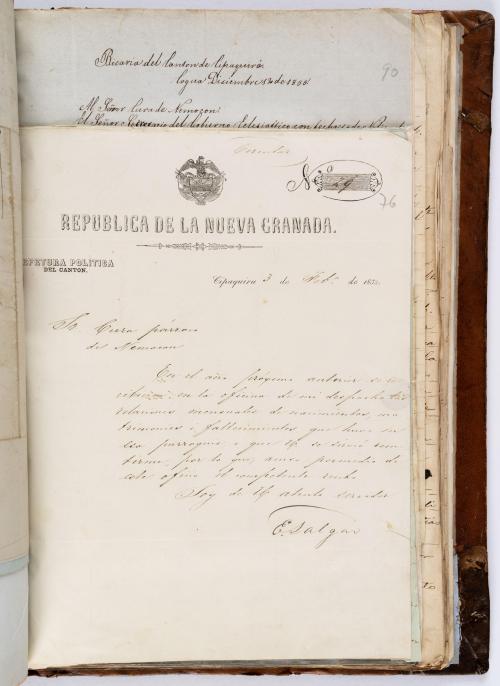 Vicaria del Canton de Cipaquirá
Cogua Diciembre 8 de 1855
90
Sr Cura de Nemocon
El Señor del Gobierno Eclesiastico con fecha
Circular
No 29
76
REPUBLICA DE LA NUEVA GRANADA.
EFETURA POLITICA
DEL CANTON.
Cipaquira 3 de Feb. de 185
Sr Cura párroco
de Nemocon
En el año próximo anterior se
en la oficina de mi despacho
relaciones mensuales de nacimientos, ma
trimonios i fallecimientos que hubo en
esa parroquia i que U. se sirvió
por lo que, acuso por medio de
este oficio el competente recibo
Soy de U. atento servidor
E. Salgar